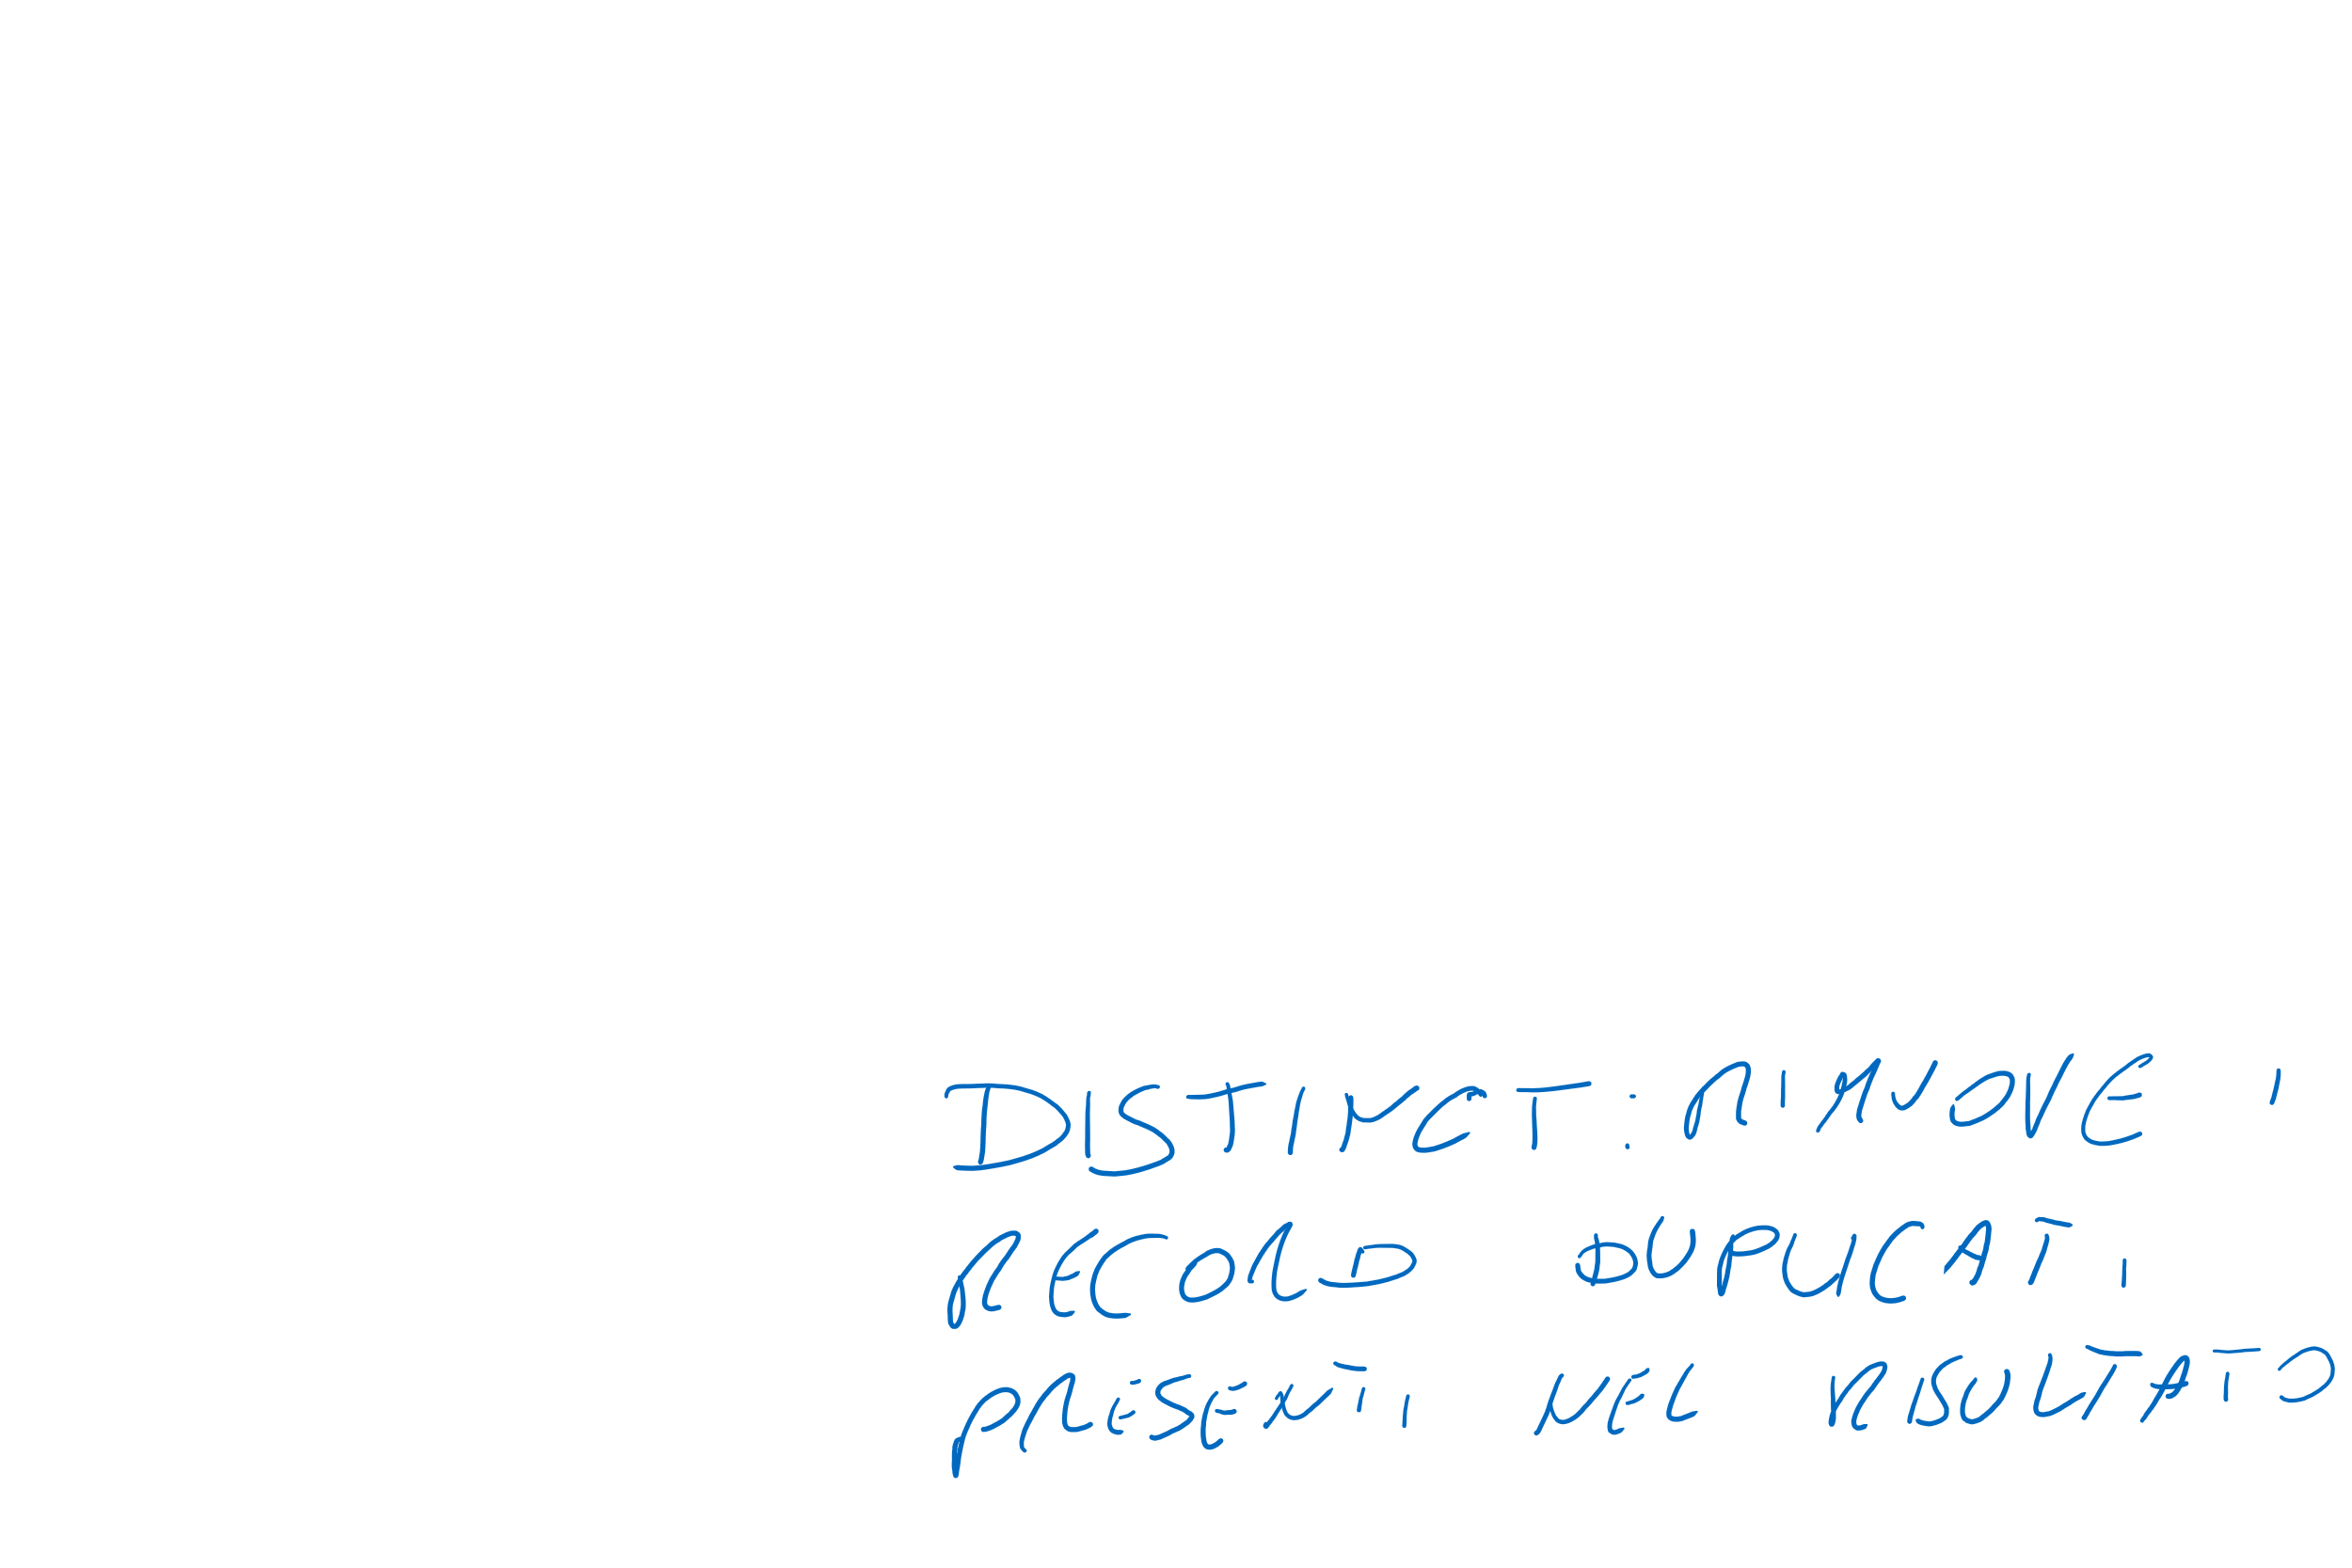 DISTINCT: RIMUOVE I
RECORD DUPLICATI
PRESENTI NEL RISULTATO